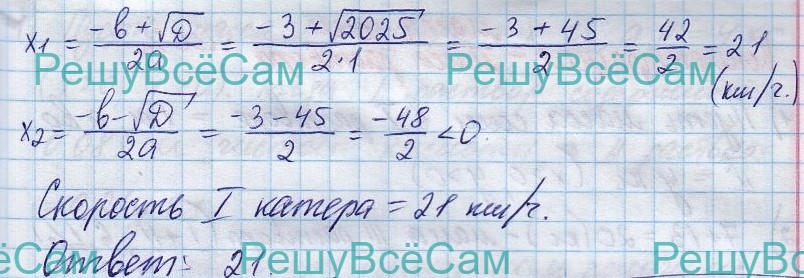 x₁ = (-в + √Д)/(2а) = (-3 + √2025)/(2·1) = (-3 + 45)/2 = 42/2 = 21
(км/ч.)
РешуВсёСам РешуВсёСам
x₂ = (-в - √Д)/(2а) = (-3 - 45)/2 = (-48)/2 < 0.
Скорость I катера = 21 км/ч.
Ответ: 21.
ёСам РешуВсёСам РешуВс